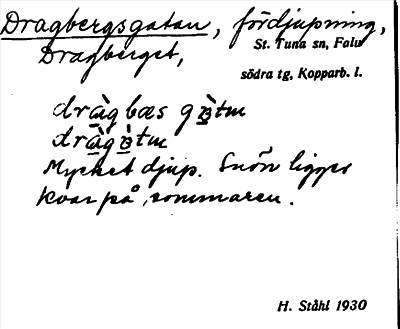 Dragbergsgatan, fördjupning,
St. Tuna sn, Falu
Dragberget,
södra tg, Kopparb. l.
Mycket djup. Snön ligger
kvar på sommaren.
H. Ståhl 1930